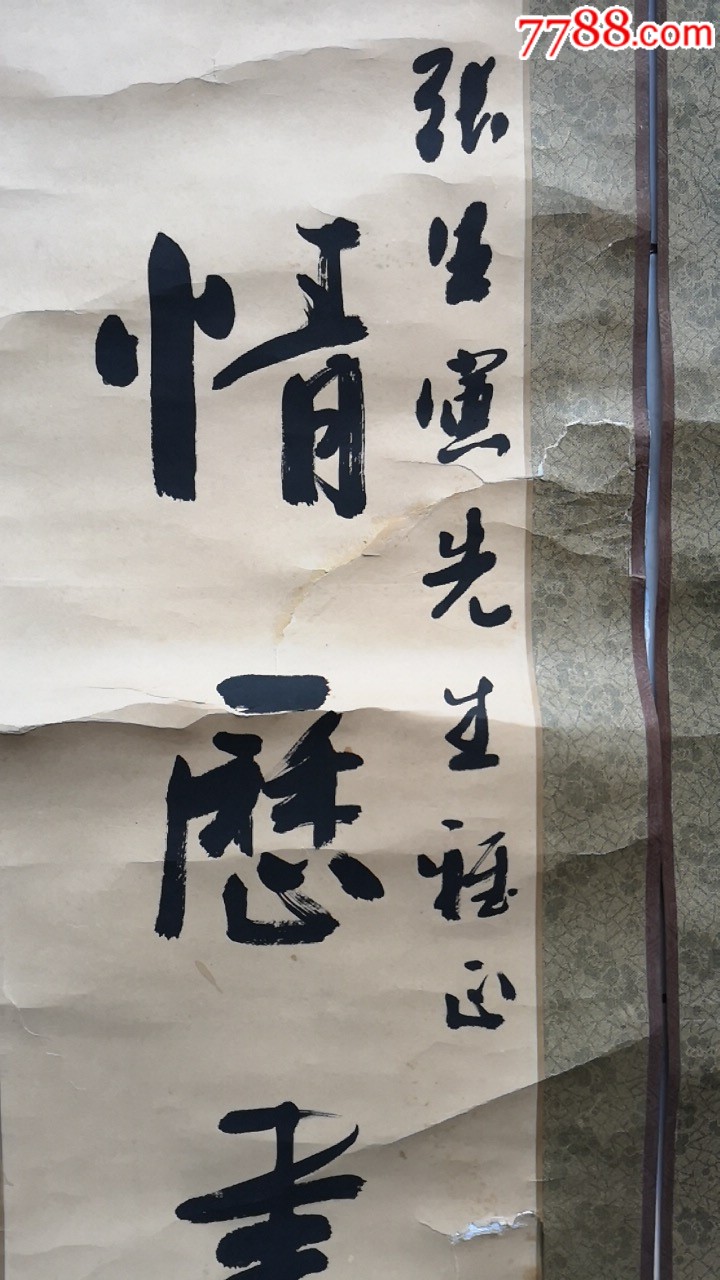 7788.com
张生寅先生雅正
情歷